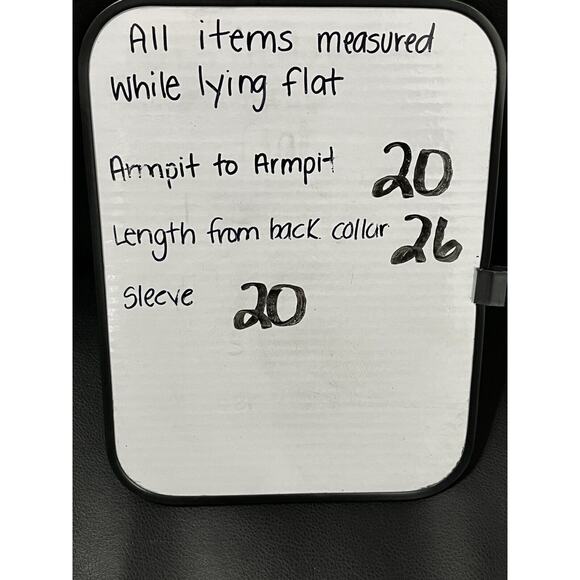 All items measured
while lying flat
Armpit to Armpit 20
Length from back collar 26
Sleeve 20